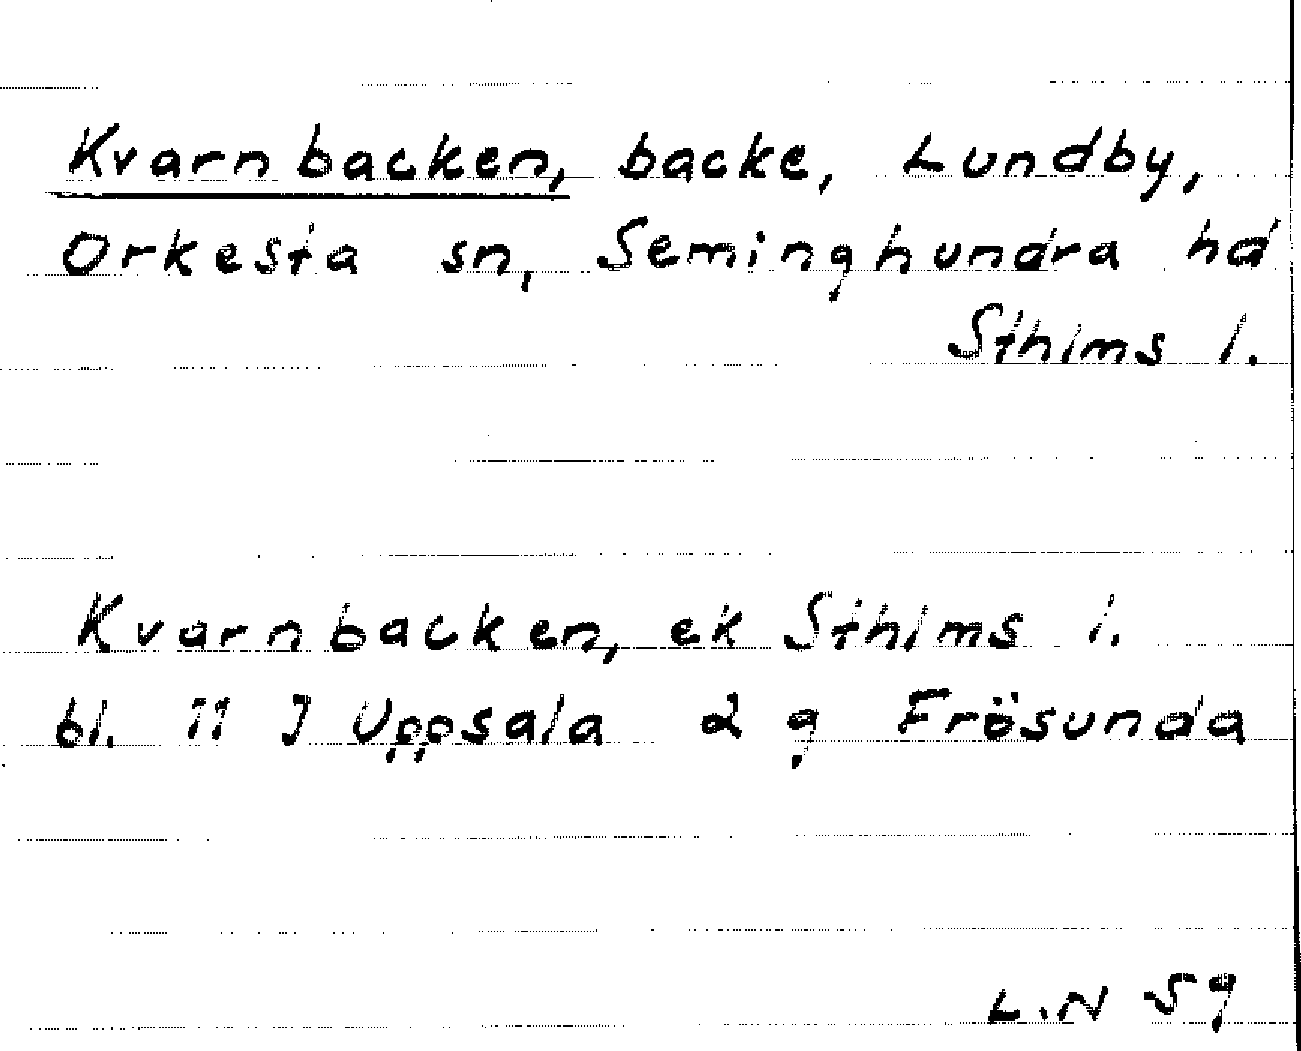 Kvarnbacken, backe, Lundby,
Orkesta sn, Seminghundra hd
Sthlms l.
Kvarnbacken, ek Sthlms l.
bl. 11 J Uppsala 2 g Frösunda
L.N 59